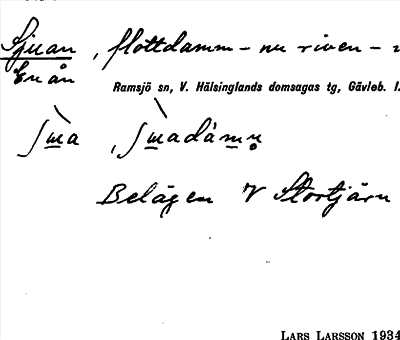 Sjuan, flottdamm - nu riven -
Enån
Ramsjö sn, V. Hälsinglands domsagas tg, Gävleb. l.
Belägen V Stortjärn
LARS LARSSON 1934